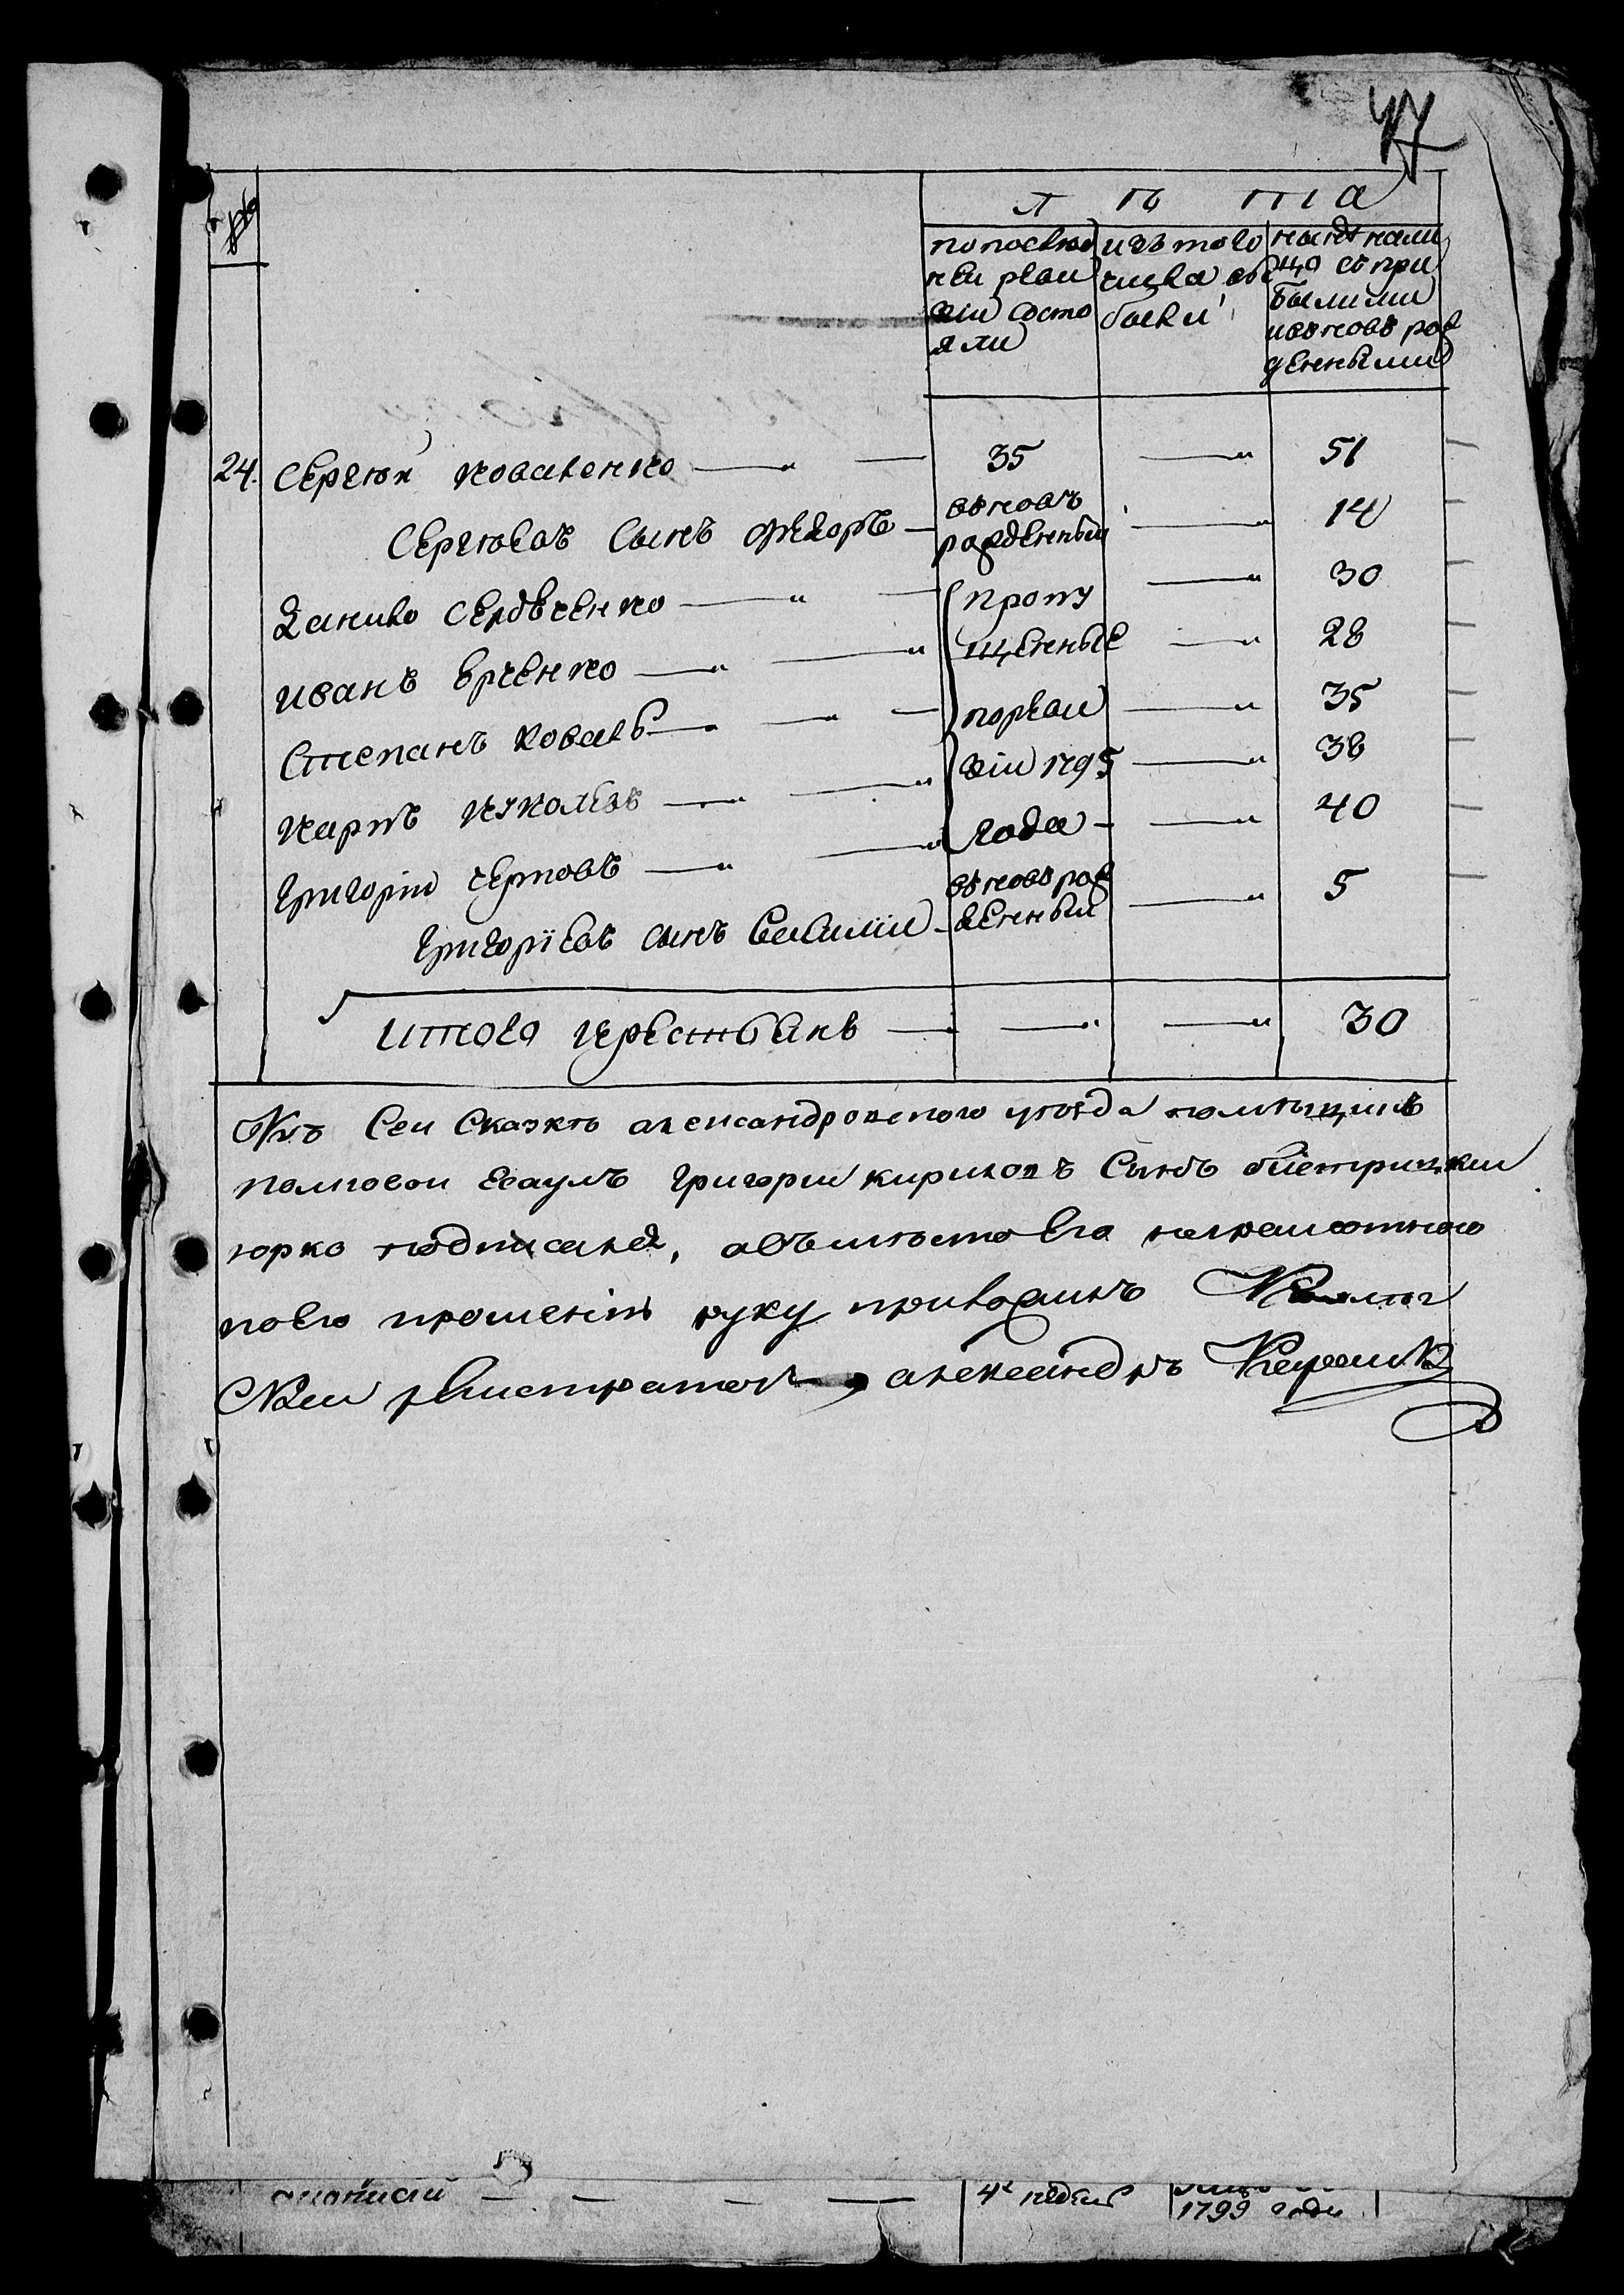 47
№
лѣта
по послѣд ней реви зіи состо яли
изъ того числа вы были
нынѣ нали цо съ при былыми и вновь рож денными
24. Сергѣй Коваленко 35 51
Сергѣевъ сынъ Федоръ вновь рожденный 14
Данило Сердѣченко пропу 30
Иванъ щенные 28
Степанъ Коваль по реви 35
Карпъ зіи 1795 38
Григорій года 40
Григоріевъ сынъ вновь рож денный 5
Итого крестьянъ 30
Къ сей сказкѣ александровского уѣзда помѣщикъ
полковой есаулъ Григорий кириловъ сынъ
юрко подписался, авъместо его неграмотного
по его прошенію руку приложилъ
регистраторъ александръ
недель
1799 года